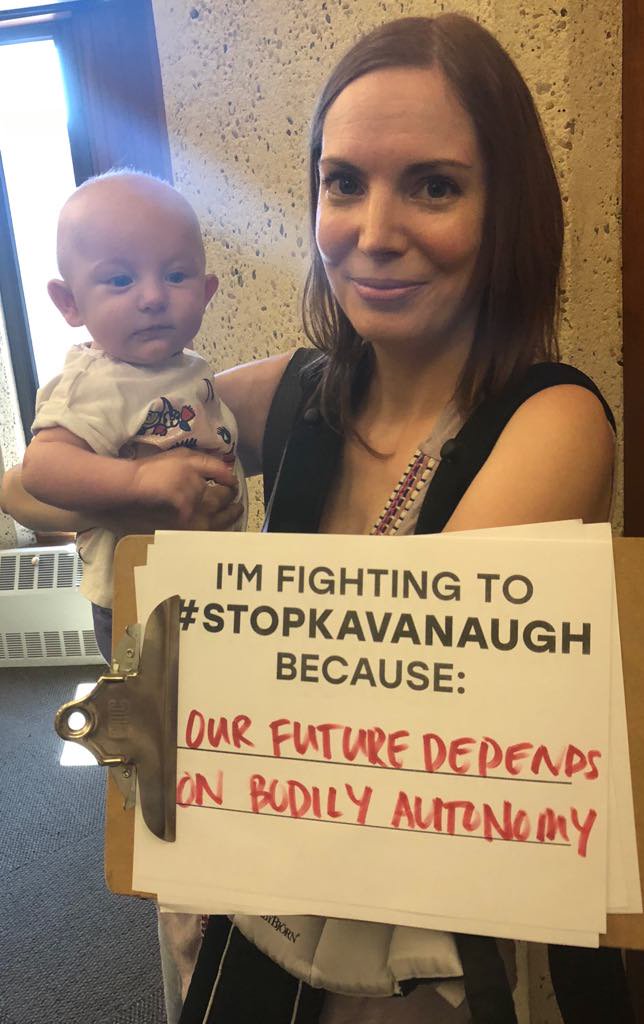 I'M FIGHTING TO
#STOPKAVANAUGH
BECAUSE:
OUR FUTURE DEPENDS
ON BODILY AUTONOMY